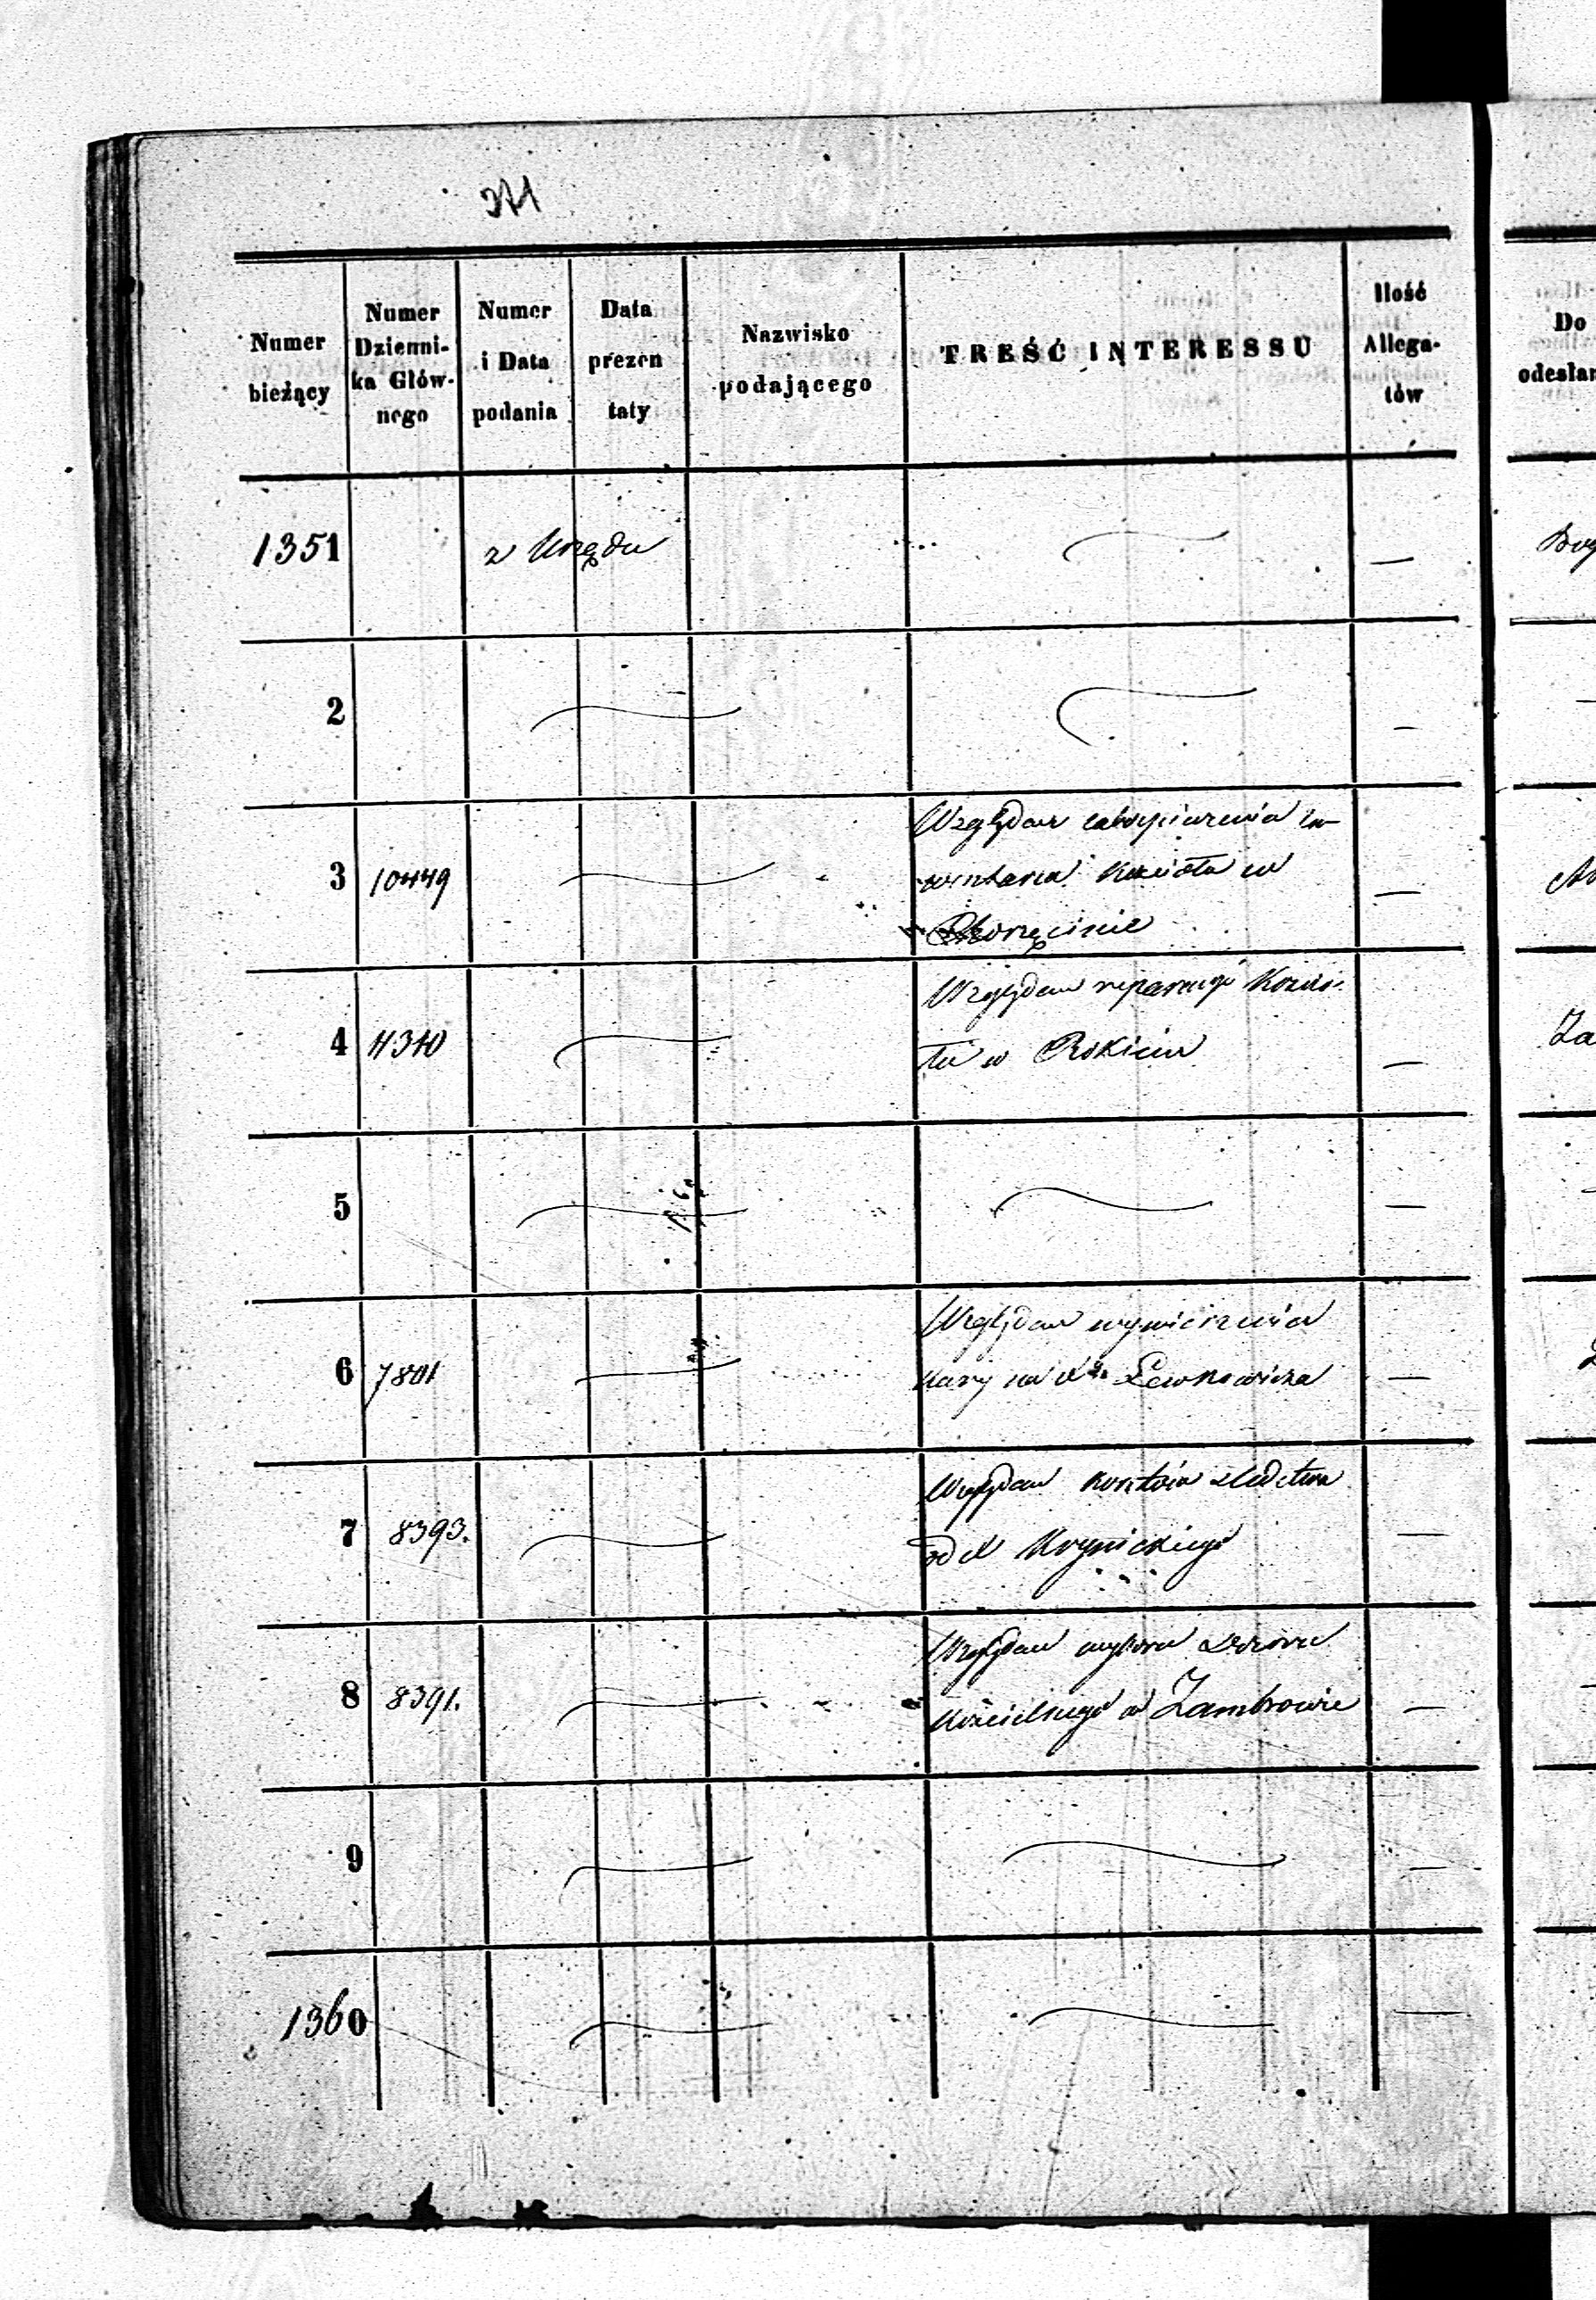 371
Numer bieżący
Numer Dzienni-
ka Głów-
nego
Numer i Data podania
Data prezen
taty
Nazwisko podającego
TREŚĆ INTERESSU
Ilość Allega-
tów
Do odesłan
1351 z Urzędu —
2 —
3 10449 Względem
Kościoła w
—
4 11310 Względem reparacyi Kościo-
ła w Rokiciu —
5 —
6 7801 Względem wymierzenia
kary na X Lewkowicza —
7 8393. Względem kosztów śledztwa
od X Krynickiego —
8 8391. Względem wyboru Dozoru
Kościelnego w Zambrowie —
9 —
1360 —